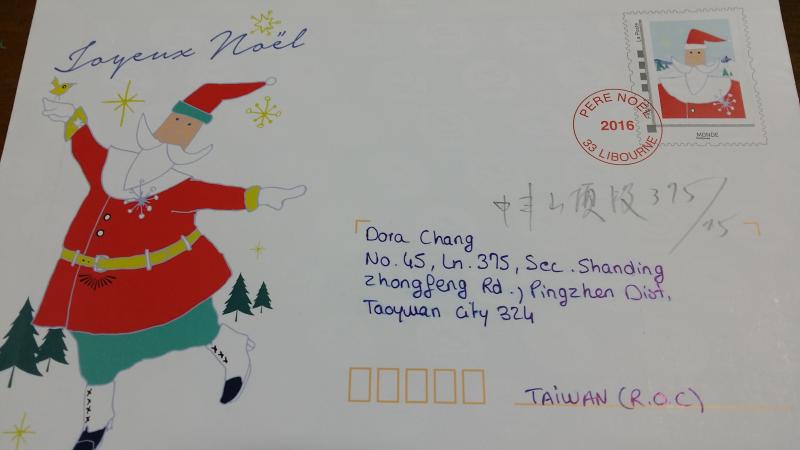 Joyeux Noël
La Poste
PERE NOEL
2016
33 LIBOURNE
MONDE
中丰山頂段375/45
Dora Chang
No. 45, Ln. 375, Sec. Shanding
Zhongfeng Rd., Pingzhen Dist,
Taoyuan City 324
TAIWAN (R.O.C)